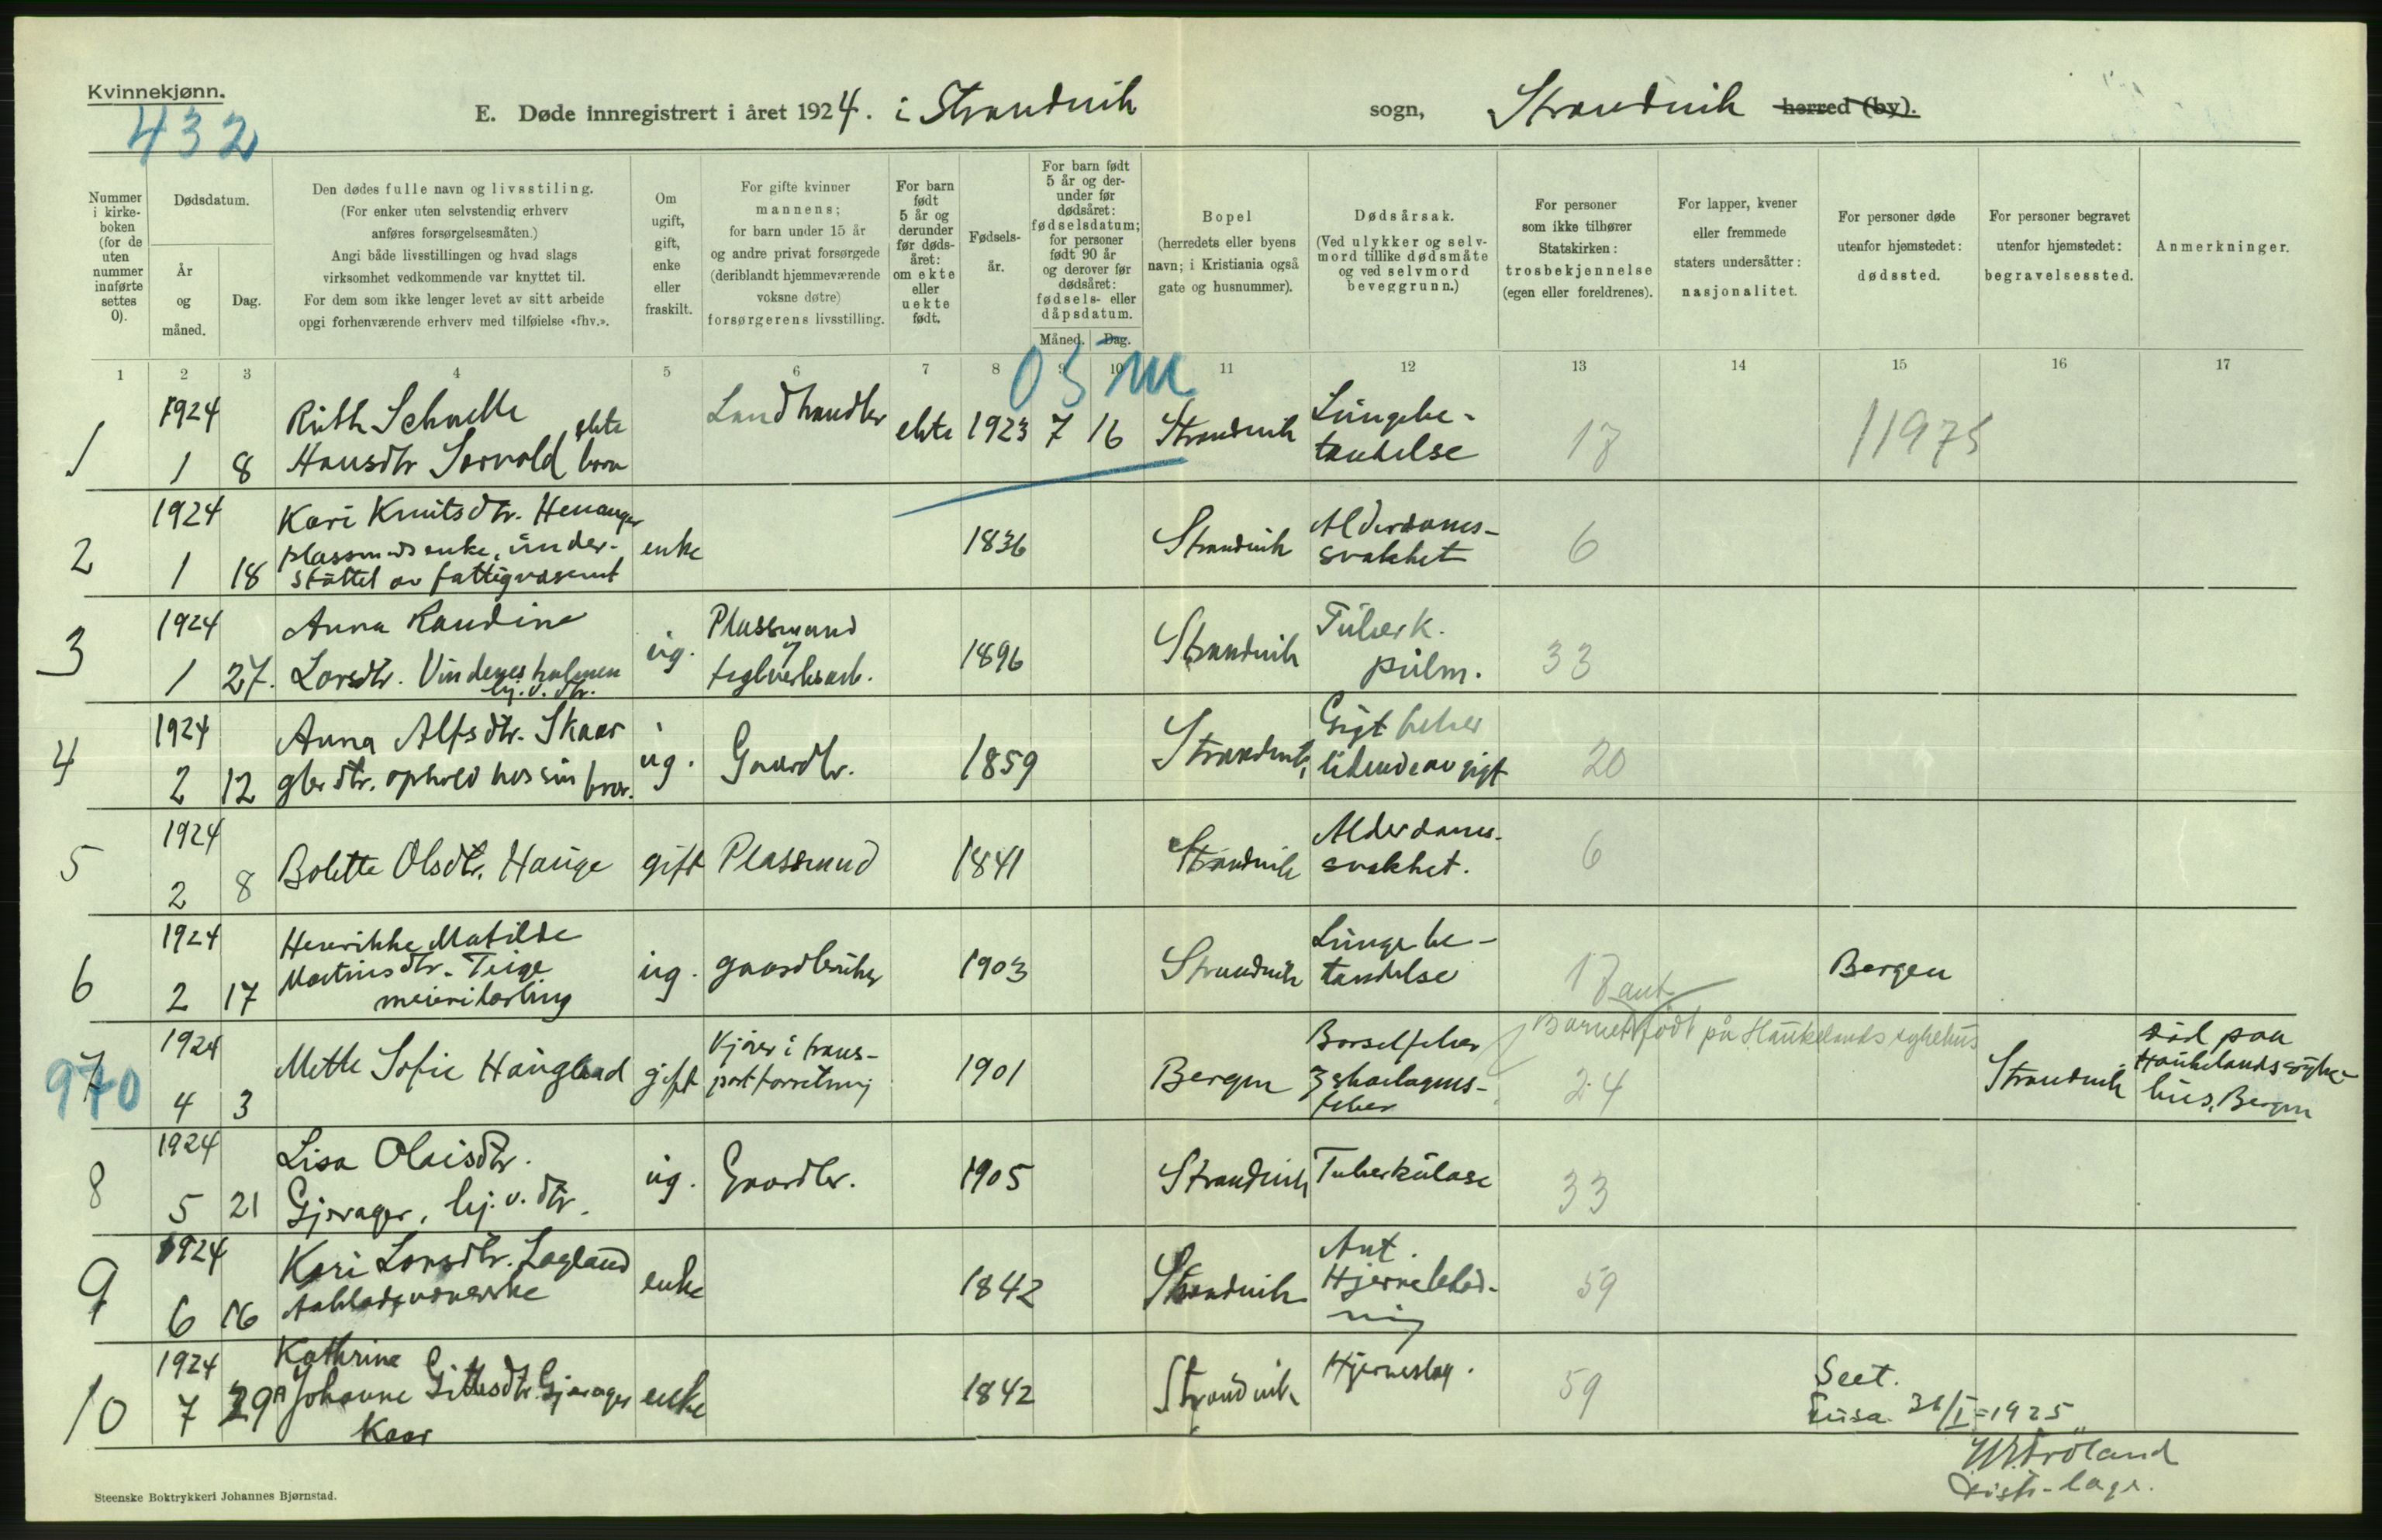 Kvinnekjønn.
432
E. Døde innregistrert i året 1924. i Strandvik sogn, Strandvik herred (by).
Nummer i kirke-boken (for de uten nummer innførte settes 0).
Dødsdatum.
År og måned.
Dag.
Den dødes fulle navn og livsstiling.
(For enker uten selvstendig erhverv
anføres forsørgelsesmåten.)
Angi både livsstillingen og hvad slags
virksomhet vedkommende var knyttet til.
For dem som ikke lenger levet av sitt arbeide
opgi forhenværende erhverv med tilføielse «fhv.».
Om
ugift,
gift,
enke
eller
fraskilt.
For gifte kvinner
mannens;
for barn under 15 år
og andre privat forsørgede
(deriblandt hjemmeværende
voksne døtre)
forsørgerens livsstilling.
For barn
født
5 år og
derunder
før døds-
året:
om ekte
eller
uekte
født.
Fødsels-
år.
For barn født
5 år og der-
under før
dødsåret:
fødselsdatum;
for personer
født 90 år
og derover før
dødsåret:
fødsels- eller
dåpsdatum.
Måned. Dag.
Bopel
(herredets eller byens
navn; i Kristiania også
gate og husnummer).
Dødsårsak.
(Ved ulykker og selv-
mord tillike dødsmåte
og ved selvmord
beveggrunn.)
For personer
som ikke tilhører
Statskirken:
trosbekjennelse
(egen eller foreldrenes).
For lapper, kvener
eller fremmede
staters undersåtter:
nasjonalitet.
For personer døde
utenfor hjemstedet:
dødssted.
For personer begravet
utenfor hjemstedet:
begravelsessted.
Anmerkninger.
1 2 3 4 5 6 7 8 9 10 11 12 13 14 15 16 17
1 1924 1 8
Ruth Schnelle
Hansdtr Sørvold ekte barn
Landhandler ekte 1923 7 16 Strandvik
Lungebe-
tændelse
17 11975
2 1924 1 18
Kari Knutsdtr. Henanger
plassmands enke, under-
støttet av fattigvæsenet
enke 1836 Strandvik
Alderdoms-
svakhet
6
3 1924 1 27.
Anna Randine
Larsdtr. Vindenesholmen
hj. v. dtr.
ug.
Plassmand
og
teglverksarb.
1896 Strandvik
Tuberk.
pulm.
33
4 1924 2 12
Anna Alfsdtr. Skaar
gbr dtr. ophold hos sin bror.
ug. Gaardbr. 1859 Strandvik,
Gigtfeber
lidende av gigt
20
5 1924 2 8
Bolette Olsdtr. Hauge gift Plassmand 1841 Strandvik
Alderdoms-
svakhet.
6
6 1924 2 17
Henrikke Matilde
Martinsdtr. Teige
meierilærling
ug. gaardbruker 1903 Strandvik
Lungebe-
tændelse
17 ant
Bergen
7 970 1924 4 3
Mette Sofie Haugland gift
Kjører i trans-
portforretning
1901 Bergen
Barselfeber
skarlagens-
feber
24
Barnet født på Haukelands sykehus
Strandvik
død paa
Haukelands syke-
hus, Bergen
8 1924 5 21
Lisa Olaisdtr.
Gjerager, hj. v. dtr.
ug. Gaardbr. 1905 Strandvik Tuberkulose 33
9 1924 6 16
Kari Larsdtr. Lagland
enke 1842 Strandvik
Ant.
Hjerneblød-
ning
59
10 1924 7 29
Kathrine
Johanne Gittlesdtr. Gjerager
Kaar
enke 1842 Strandvik Hjerneslag. 59
Seet.
Fusa. 31/I=1925
Tröland
Distr-læge.
Steenske Boktrykkeri Johannes Bjørnstad.